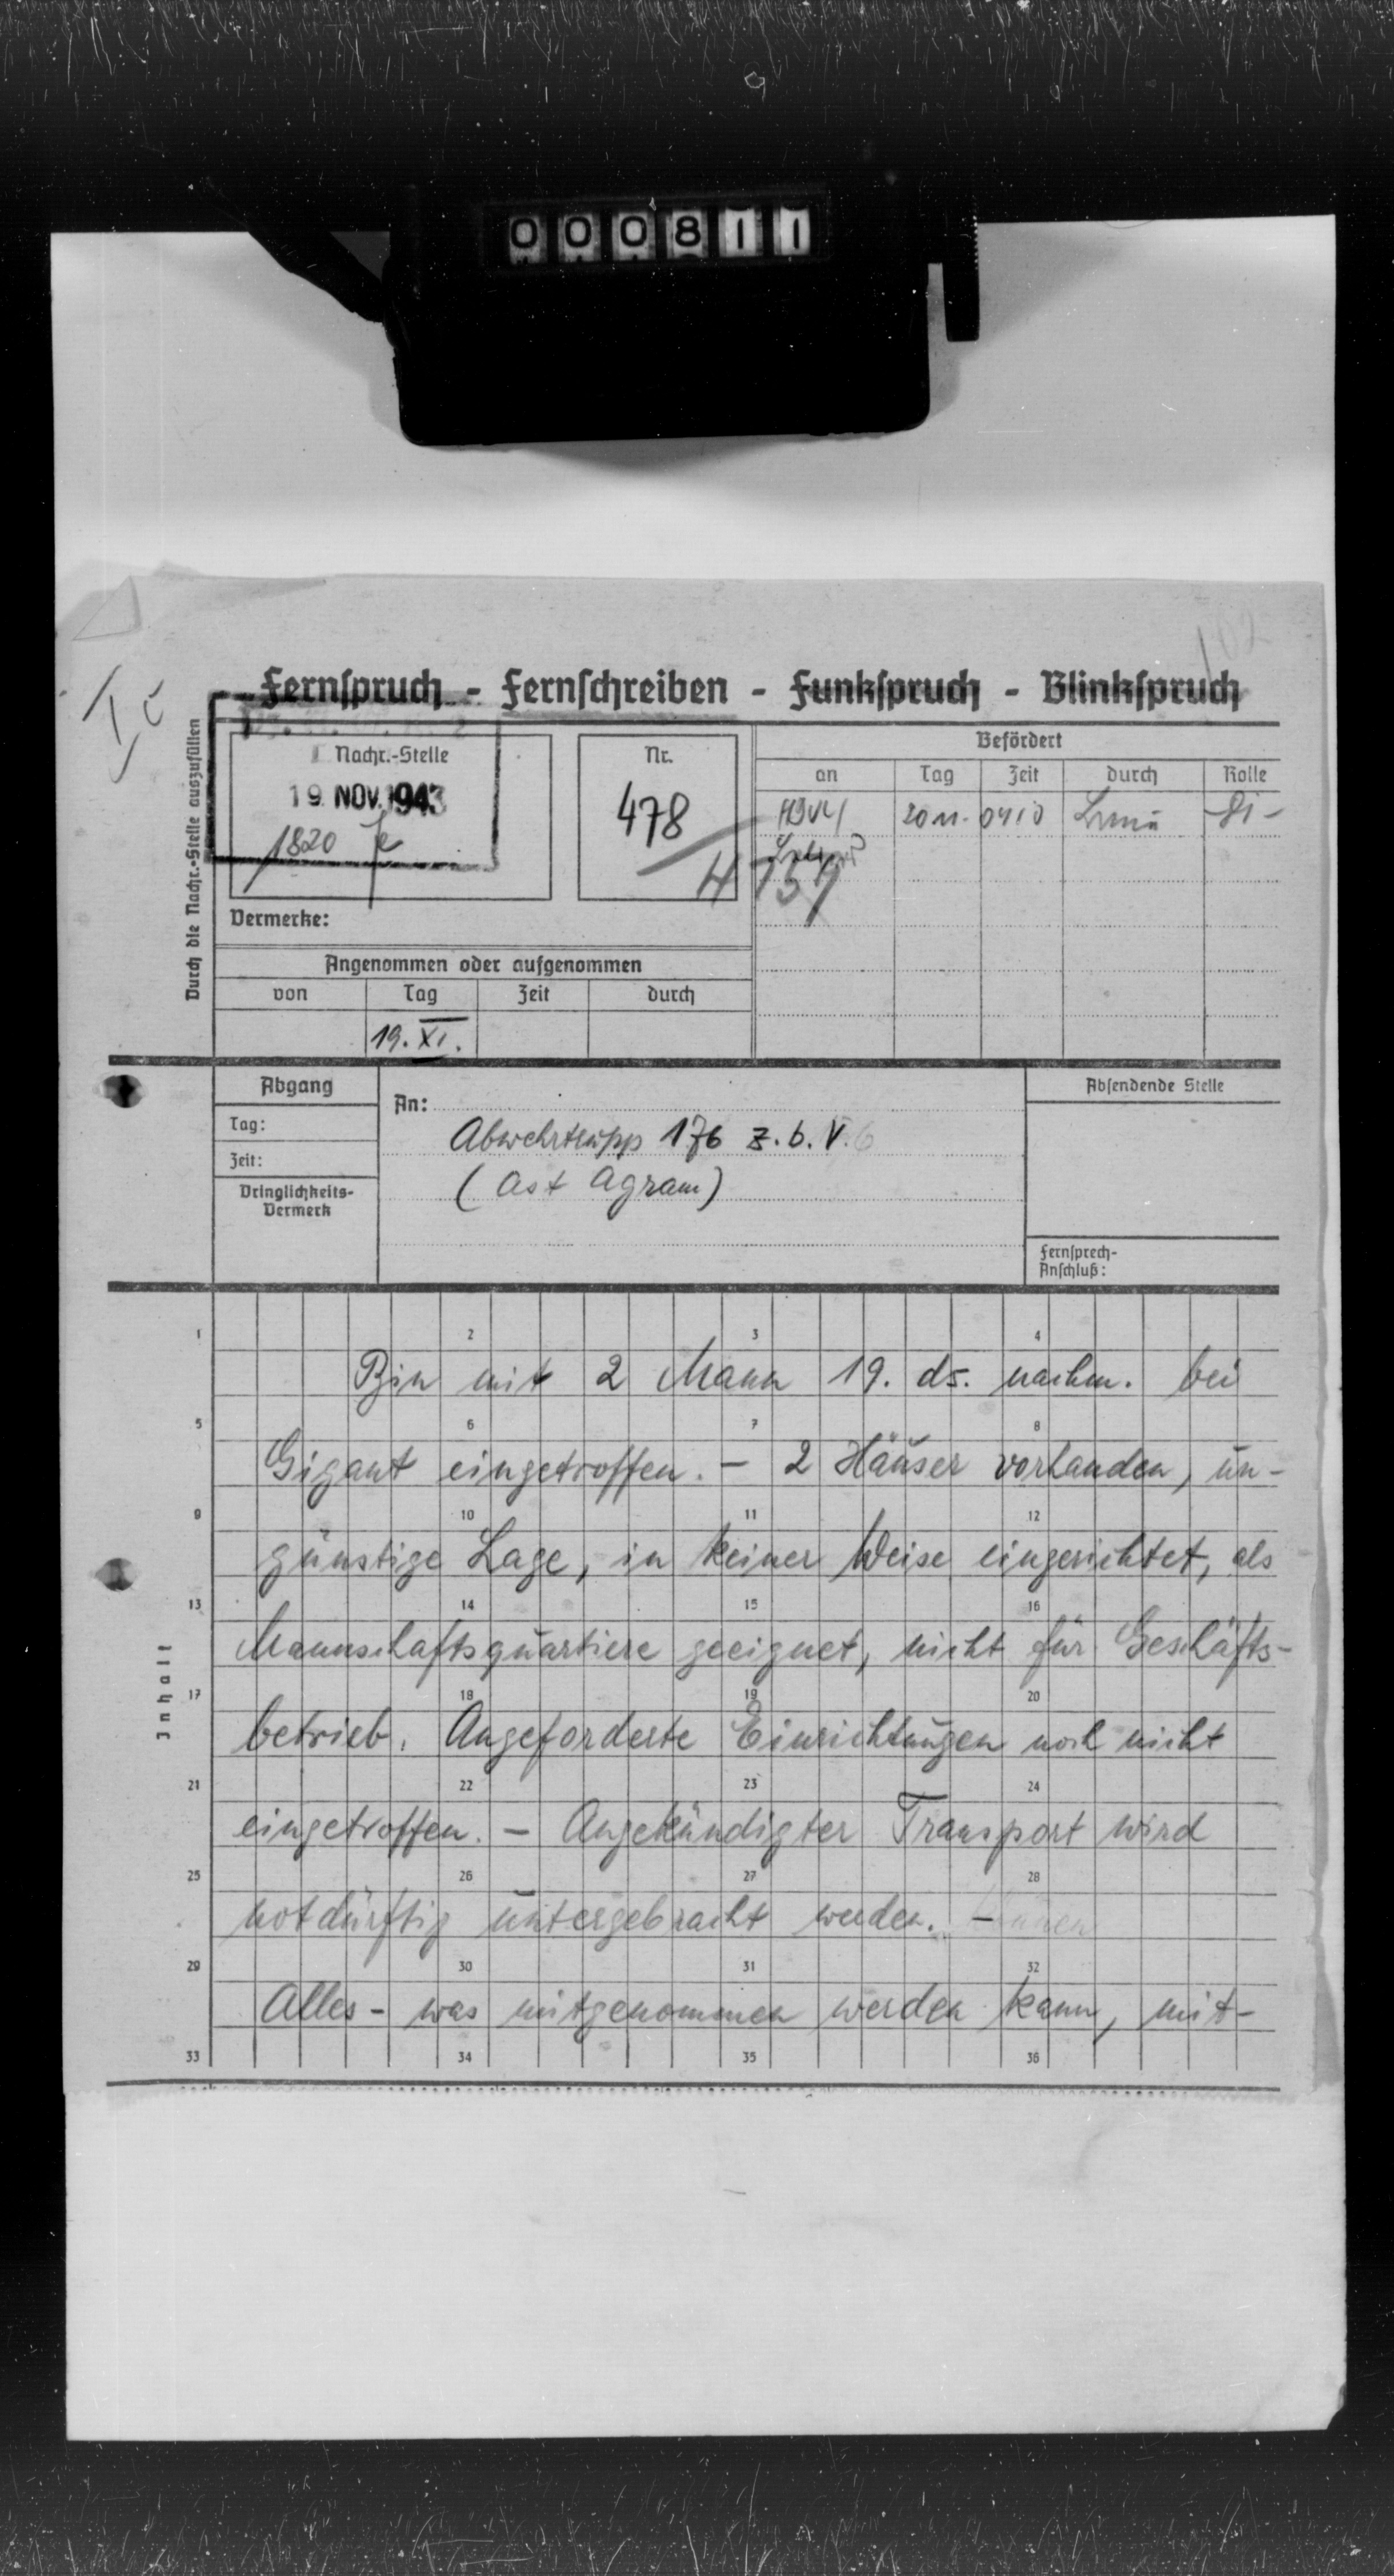 000811
102
Ic
Fernspruch - Fernschreiben - Funkspruch - Blinkspruch
Durch die Nachr.-Stelle auszufüllen
Nachr.-Stelle
19. NOV. 1943
1820
Nr.
478
Befördert
an Tag Zeit durch Rolle
20 11. 0410
Vermerke:
Angenommen oder aufgenommen
von Tag Zeit durch
19. XI.
Abgang
Tag:
Zeit:
Dringlichkeits-
Vermerk
An:
Abwehrtrupp 176 z.b.V.
(Ast Agram)
Absendende Stelle
Fernsprech-
Anschluß:
Inhalt
1 2 3 4
Bin mit 2 Mann 19. ds. nachm. bei
5 6 7 8
Gigant eingetroffen. – 2 Häuser vorhanden, un-
9 10 11 12
günstige Lage, in keiner Weise eingerichtet, als
13 14 15 16
Mannschaftsquartiere geeignet, nicht für Geschäfts-
17 18 19 20
betrieb. Angeforderte Einrichtungen noch nicht
21 22 23 24
eingetroffen. – Angekündigter Transport wird
25 26 27 28
notdürftig untergebracht werden. –
29 30 31 32
Alles - was mitgenommen werden kann, mit-
33 34 35 36